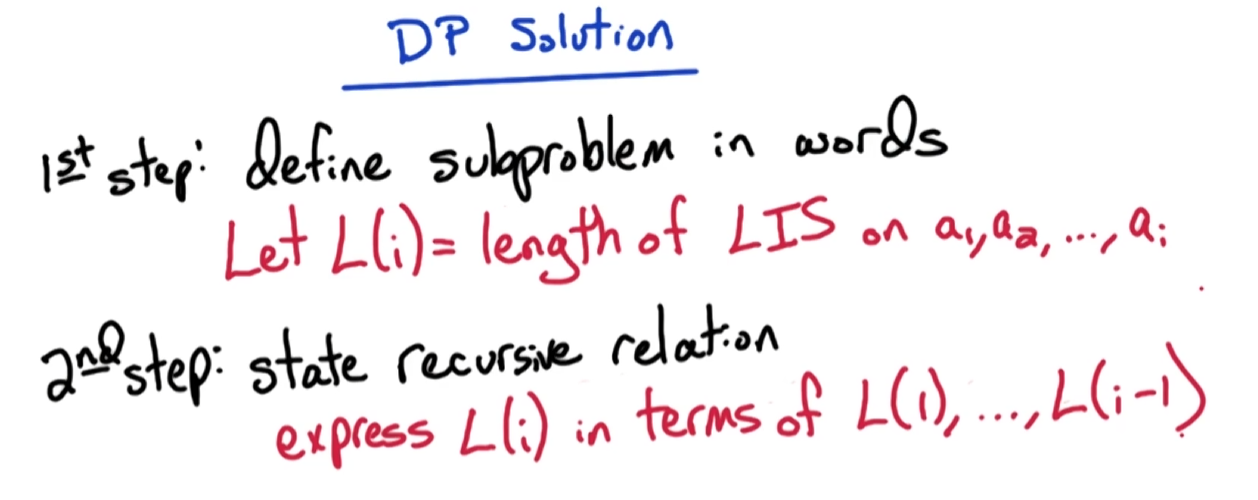 DP Solution
1st step: define subproblem in words
Let L(i) = length of LIS on a₁, a₂, ..., aᵢ
2nd step: state recursive relation
express L(i) in terms of L(1), ..., L(i-1)